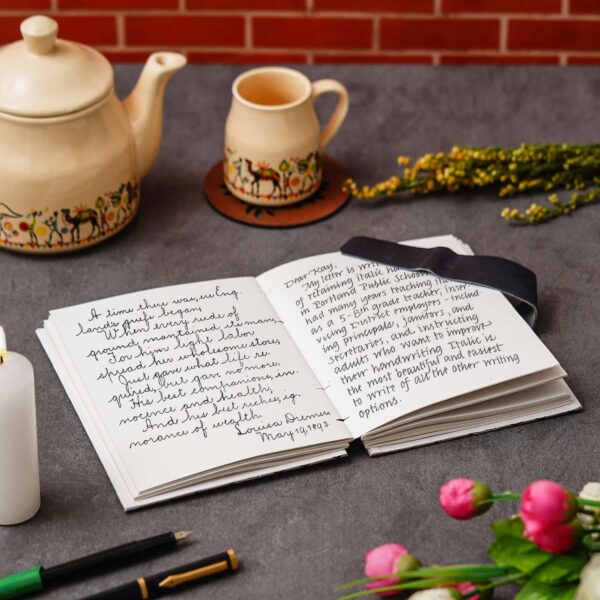 A time there was, ere Eng-
land's griefs began,
When every rood of
ground maintained its man;
For him light labor
spread her wholesome store,
Just gave what life re-
quired, but gave no more.
His best companions, in-
nocence and health;
And his best riches, ig-
norance of wealth.
Louisa Diemer
May 19, 1893.
Dear Kay,
My letter is wri
of retaining italic hand
in Portland Public School
had many years teaching ita
as a 5-8th grade teacher, inser
vicing District employees - includ
ing principals, janitors, and
secretaries, and instructing
adults who want to improve
their handwriting. Italic is
the most beautiful and easiest
to write of all the other writing
options.